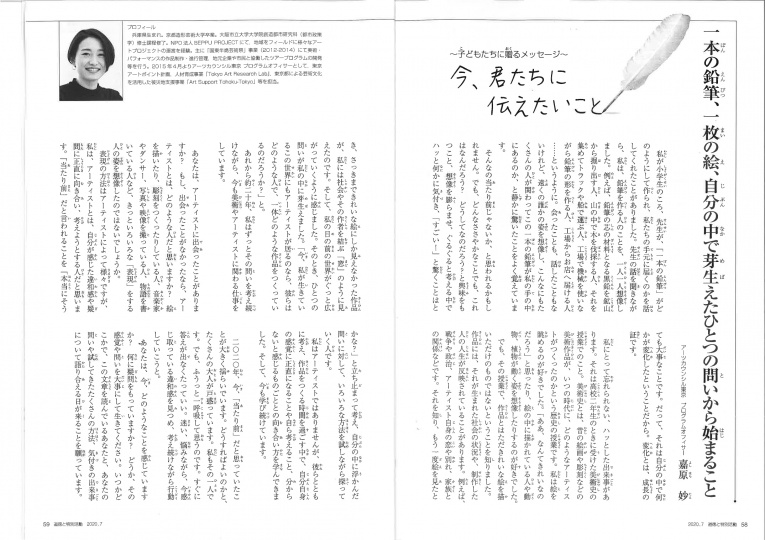 一本の鉛筆、一枚の絵、自分の中で芽生えたひとつの問いから始まること
アーツカウンシル東京 プログラムオフィサー 嘉原 妙
～子どもたちに贈るメッセージ～
今、君たちに
伝えたいこと
私が小学生のころ、先生が、「一本の鉛筆」がど
のようにして作られ、私たちの手元に届くのかを話
してくれたことがありました。先生の話を聞きなが
ら、私は、鉛筆を作る人のことを、一人一人想像し
ました。例えば、鉛筆の芯の材料となる黒鉛を鉱山
から掘り出す人、山の中で木を伐採する人、それを
集めてトラックや船で運ぶ人、工場で機械を使いな
がら鉛筆の形を作る人、工場からお店へ届ける人
……というように。会ったことも、話したこともな
いけれど、遠くの誰かの姿を想像し、こんなにもた
くさんの人が関わってこの一本の鉛筆が私の手の中
にあるのか、と静かに驚いたことをよく覚えています。
そんなの当たり前じゃないか、と思われるかもし
れません。でも、どんなささやかなことでも、これ
はなんだろう、どうしてなのだろうと興味をも
つこと、想像を膨らませ、ぐるぐると考える中で
ハッと何かに気付き、「すごい！」と驚くことはと
ても大事なことです。だって、それは自分の中で何
かが変化したということだから。変化とは、成長の
証です。
私にとって忘れられない、ハッとした出来事があ
ります。それは高校二年生のときに受けた美術史の
授業でのこと。美術史とは、昔の絵画や彫刻などの
美術作品が、いつの時代に、どのようなアーティス
トがつくったのかという歴史の授業です。私は絵を
眺めるのが好きでした。「ああ、なんてきれいなの
だろう」と思ったり、絵の中に描かれている人や動
物、植物が動く姿を想像したりするのが好きでした。
でも、その授業で、作品とはただきれいな絵を描
いただけのものではないということを知りました。
作品には、それが生まれた社会の状況や、制作した
人の人生が反映されていることがあります。例えば、
戦争や政治、アーティスト自身の恋や別れ、家族と
の関係などです。それを知り、もう一度絵を見たと
き、さっきまできれいな絵にしか見えなかった作品
が、私には社会やその作者を結ぶ「窓」のように見
えたのです。そして、私の目の前の世界がぐっと広
がっていくように感じました。そのとき、ひとつの
問いが私の中に芽生えました。「今、私が生きてい
るこの世界にもアーティストが居るのなら、彼らは
どのような人で、一体どのような作品をつくってい
るのだろうか？」と。
あれから約二十年、私はずっとその問いを考え続
けながら、今も美術やアーティストに関わる仕事を
しています。
あなたは、アーティストに出会ったことがありま
すか？ もし、出会ったことがなかったなら、アー
ティストとは、どのような人だと思いますか？ 絵
を描いたり、彫刻をつくったりしている人、音楽家
やダンサー、写真や映像を撮っている人、物語を書
いている人など、きっといろいろな「表現」をする
人の姿を想像したのではないでしょうか。
表現の方法はアーティストによって様々ですが、
私は、アーティストとは、自分が感じた違和感や疑
問に正直に向き合い、考えようとする人だと思いま
す。「当たり前」だと言われることを「本当にそう
かな？」と立ち止まって考え、自分の中に浮かんだ
問いに対して、いろいろな方法を試しながら探って
いく人です。
私はアーティストではありませんが、彼らととも
に考え、作品をつくる時間を過ごす中で、自分自身
の感覚に正直になることや自ら考えること、分から
ないと感じるものごととの向き合い方を学んできま
した。そして、今も学び続けています。
二〇二〇年、今、「当たり前」だと思っていたこ
とが大きく揺らいでいます。どうすればよいのかと、
たくさんの大人が戸惑っています。私もその一人で
す。でも、ふうっと一呼吸して思うのです。すぐに
答えが出なくたっていい。迷い、悩みながら、今感
じ取っている違和感を見つめ、考え続けながら行動
あなたは、今、どのようなことを感じています
か？ 何に疑問をもっていますか？ どうか、その
感覚や問いを大事にして生きてください。いつかど
こかで、この文章を読んでいるあなたと、あなたの
問いや試してきたたくさんの方法、気付きの出来事
について語り合える日が来ることを願っています。
プロフィール
兵庫県生まれ。京都造形芸術大学卒業。大阪市立大学大学院創造都市研究科（都市政策
学）修士課程修了。NPO法人BEPPU PROJECTにて、地域をフィールドに様々なアー
トプロジェクトの運営を経験。主に「国東半島芸術祭」事業（2012-2014）にて美術・
パフォーマンスの作品制作・進行管理、地元企業や市民と協働したツアープログラムの開発
等を行う。2015年4月よりアーツカウンシル東京 プログラムオフィサーとして、東京
アートポイント計画、人材育成事業「Tokyo Art Research Lab」、東京都による芸術文化
を活用した被災地支援事業「Art Support Tohoku-Tokyo」等を担当。
59 道徳と特別活動 2020.7
2020.7 道徳と特別活動 58